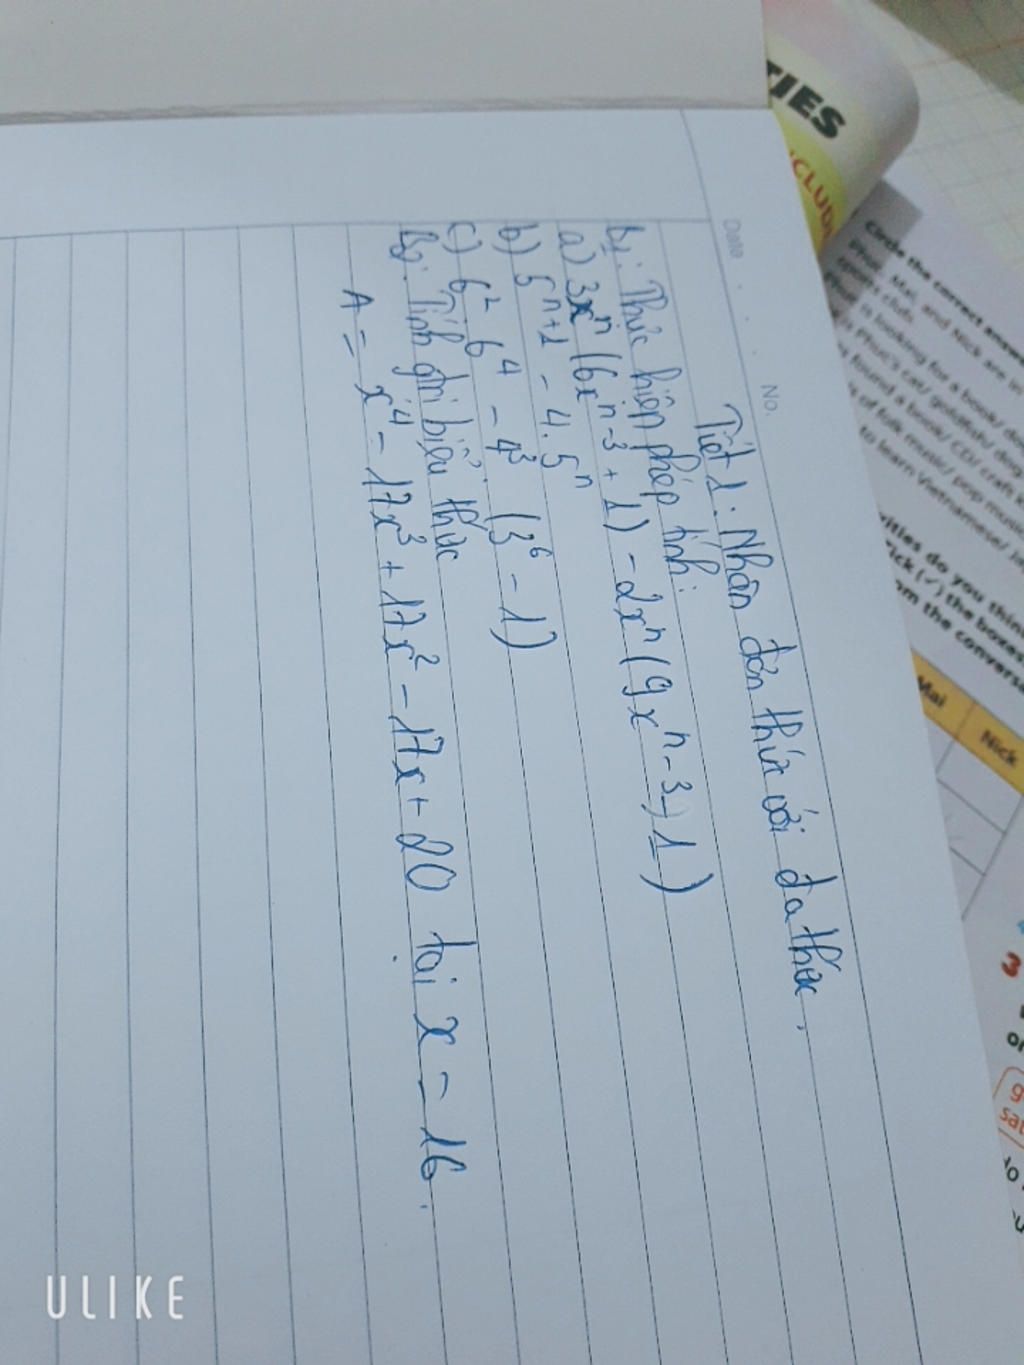 Date
No.
Tiết 1: Nhân đơn thức với đa thức.
B1: Thực hiện phép tính:
a) 3xⁿ (6xⁿ⁻³ + 1) - 2xⁿ (9xⁿ⁻³ - 1)
b) 5ⁿ⁺¹ - 4.5ⁿ
c) 6² 6⁴ - 4³ (3⁶ - 1)
B2: Tính giá trị biểu thức
A = x⁴ - 17x³ + 17x² - 17x + 20 tại x = 16.
TIES
INCLUD
Circle the correct answe
Phuc, Mai, and Nick are in
sports club.
is looking for a book/ dog
Phuc's cat/ goldfish/ dog
found a book/ CD/ craft k
of folk music/ pop music
to learn Vietnamese/
vities do you think
Tick (✓) the boxes
om the convers
Mai
Nick
3
ULIKE